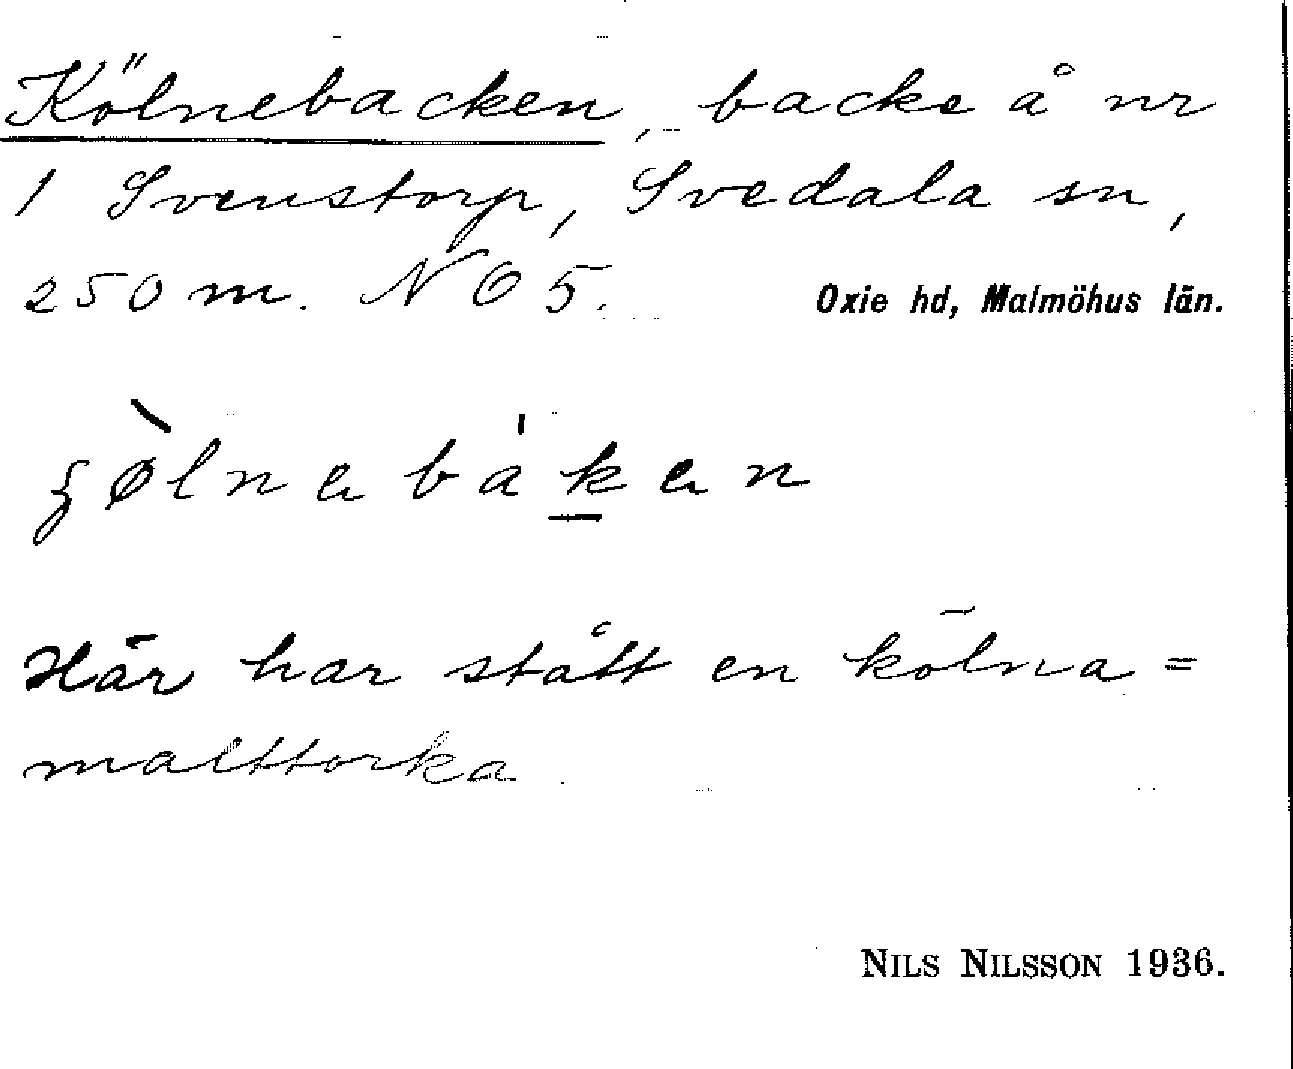 Kölnebacken, backe å nr
1 Svenstorp, Svedala sn,
250 m. N O 5.
Oxie hd, Malmöhus län.
Här har stått en kölna =
malttorka.
NILS NILSSON 1936.